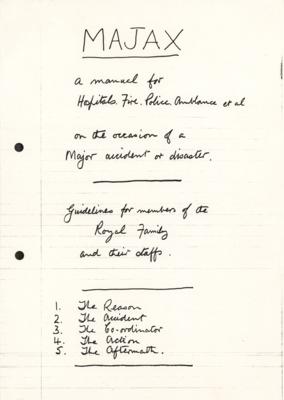 MAJAX
a manual for
Hospitals. Fire. Police. Ambulance et al
on the occasion of a
Major accident or disaster.
Guidelines for members of the
Royal Family
and their staffs.
1. The Reason
2. The Accident
3. The Co-ordinator
4. The Action
5. The Aftermath.